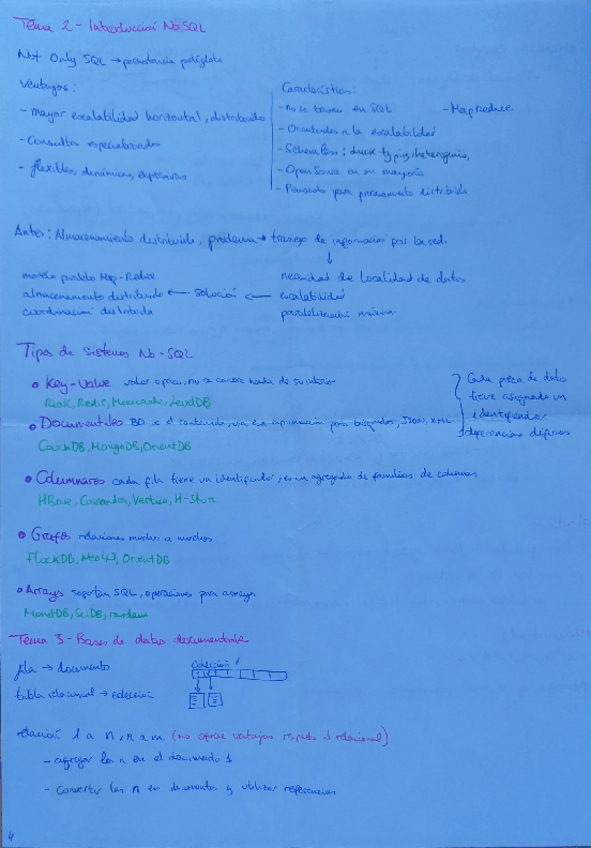 Tema 2 - Introducción NoSQL
Not Only SQL → persistencia políglota
Ventajas:
- mayor escalabilidad horizontal, distribuido
- Consultas especializadas
- flexibles, dinámicas, expresivas
Características
- No se basan en SQL - MapReduce
- Orientadas a la escalabilidad
- Schemaless: duck-typing, heterogénea,
- Open Source en su mayoría
- Pensadas para procesamiento distribuido
Antes: Almacenamiento distribuido, problema → trasiego de información por la red.
↓
necesidad de localidad de datos
escalabilidad
paralelización máxima
← solución ←
modelo paralelo Map-Reduce
almacenamiento distribuido
coordinación distribuida
Tipos de sistemas No-SQL
• Key-Value valor opaco, no conoce nada de su interior
Riak, Redis, Memcache, LevelDB
• Documentales BD el contenido, usa esa para búsquedas, JSON, XML
CouchDB, MongoDB, OrientDB
Cada pieza de dato
tiene asignado un
identificador
diferencias difusas
• Columnares cada fila tiene un identificador, es un agregado de familias de columnas
HBase, Cassandra, Vertica, H-Store
• Grafos relaciones muchos a muchos
FlockDB, Neo4J, OrientDB
• Arrays soportan SQL, operaciones para arrays
MonetDB, SciDB, rasdaman
Tema 3 - Bases de datos documentales
fila → documento
tabla relacional → colección
Colección
relación 1 a n, n a m (no ofrece ventajas respecto al relacional)
- agregar los n en el documento 1
- convertir los n en documentos y utilizar referencias
4